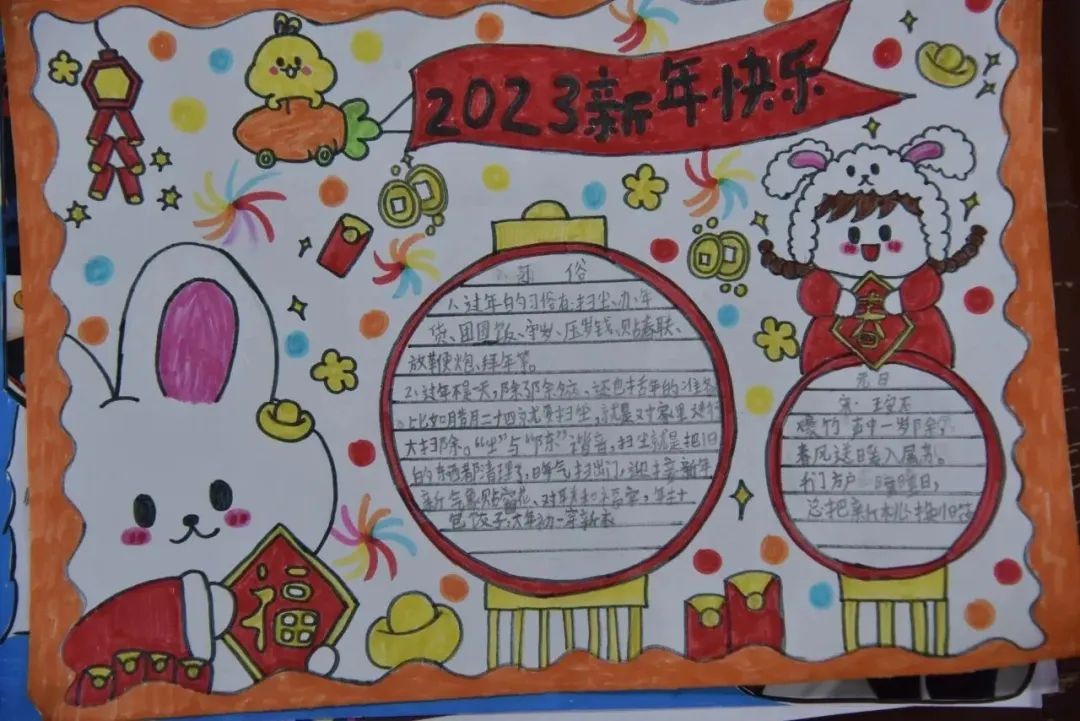 2023新年快乐
习俗
1、过年的习俗有:扫尘、办年
货、团圆饭、守岁、压岁钱、贴春联、
放鞭炮、拜年等。
2、过年是天,除了
比如腊月二十四就要扫尘,就是对家里进行
大扫除。“尘”与“陈”谐音,扫尘就是把旧
的东西都清理了,晦气扫出门,迎接新年
新气象贴窗花、对联和福字,年三十
包饺子,大年初一穿新衣
福
春
元日
宋·王安石
爆竹声中一岁除
春风送暖入屠苏。
千门万户曈曈日,
总把新桃换旧符